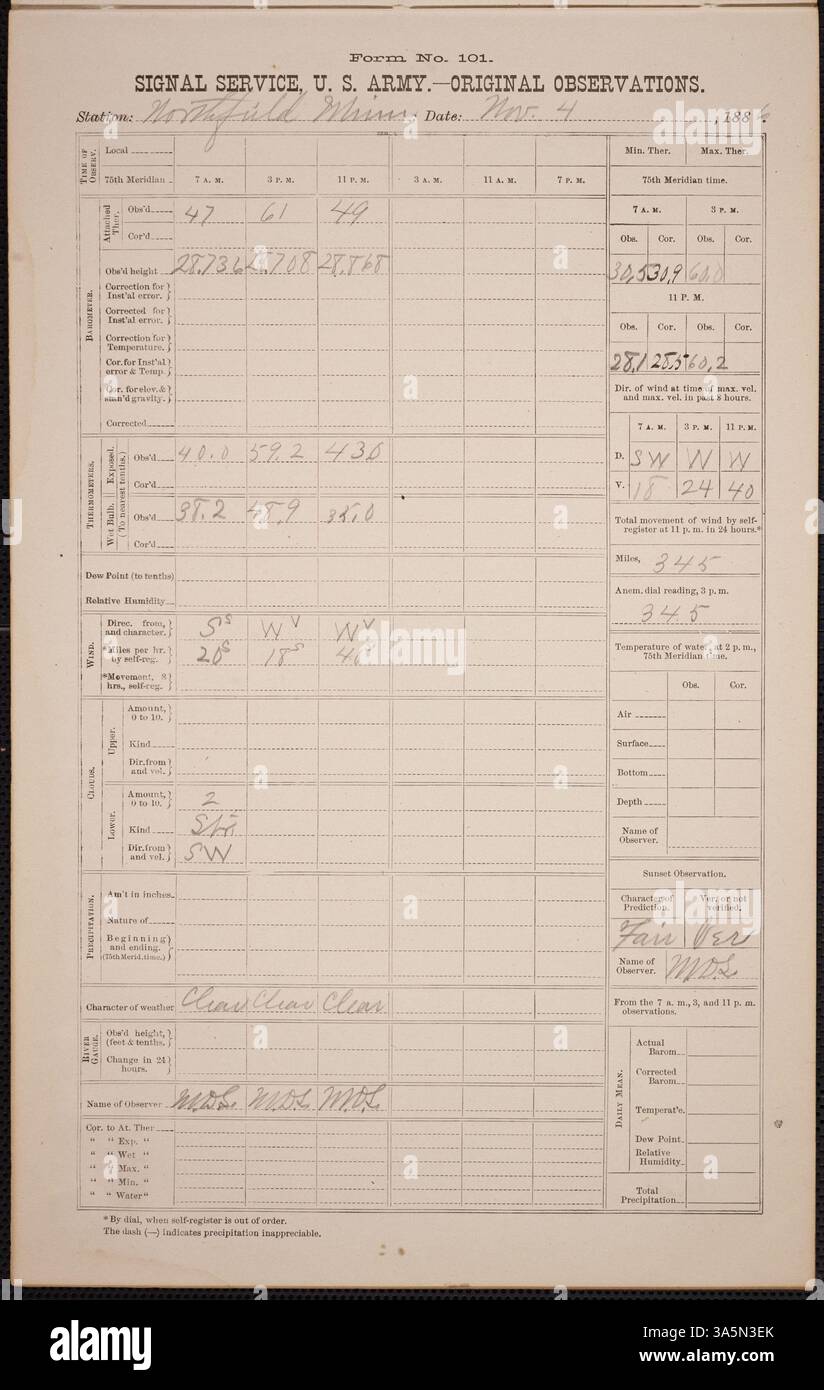 Form No. 101.
SIGNAL SERVICE, U. S. ARMY.—ORIGINAL OBSERVATIONS.
Station: Northfield Minn. Date: Nov. 4, 1886.
TIME OF OBSERV.
Local
75th Meridian 7 A. M. 3 P. M. 11 P. M. 3 A. M. 11 A. M. 7 P. M.
BAROMETER.
Attached Ther.
Obs'd 47 61 49
Cor'd
Obs'd height 28.736 28.708 28.868
Correction for Inst'al error.
Corrected for Inst'al error.
Correction for Temperature.
Cor. for Inst'al error & Temp.
Cor. for elev. & stan'd gravity.
Corrected
THERMOMETERS.
(To nearest tenths.)
Exposed.
Obs'd 40.0 59.2 43.0
Cor'd
Wet Bulb.
Obs'd 38.2 48.9 35.0
Cor'd
Dew Point (to tenths)
Relative Humidity
WIND.
Direc. from, and character. S S W V W V
*Miles per hr. by self-reg. 20 S 18 S 40
*Movement, 8 hrs., self-reg.
CLOUDS.
Upper.
Amount, 0 to 10.
Kind
Dir. from and vel.
Lower.
Amount, 0 to 10. 2
Kind Str
Dir. from and vel. SW
PRECIPITATION.
Am't in inches.
Nature of
Beginning and ending. (75th Merid. time.)
Character of weather Clear Clear Clear
RIVER GAUGE.
Obs'd height, (feet & tenths.)
Change in 24 hours.
Name of Observer M.D.L. M.D.L. M.D.L.
Cor. to At. Ther
" " Exp. "
" " Wet "
" " Max. "
" " Min. "
" " Water "
*By dial, when self-register is out of order.
The dash (—) indicates precipitation inappreciable.
Min. Ther. Max. Ther.
75th Meridian time.
7 A. M. 3 P. M.
Obs. Cor. Obs. Cor.
30.5 30.9 60.0
11 P. M.
Obs. Cor. Obs. Cor.
28.1 28.5 60.2
Dir. of wind at time of max. vel. and max. vel. in past 8 hours.
7 A. M. 3 P. M. 11 P. M.
D. SW W W
V. 18 24 40
Total movement of wind by self-register at 11 p. m. in 24 hours.*
Miles, 345
Anem. dial reading, 3 p. m.
345
Temperature of water at 2 p. m., 75th Meridian time.
Obs. Cor.
Air
Surface
Bottom
Depth
Name of Observer.
Sunset Observation.
Character of Prediction. Ver. or not verified.
Fair Ver
Name of Observer. M.D.L.
From the 7 a. m., 3, and 11 p. m. observations.
DAILY MEAN.
Actual Barom
Corrected Barom
Temperat'e.
Dew Point
Relative Humidity
Total Precipitation
alamy
alamy
Image ID: 3A5N3EK
www.alamy.com